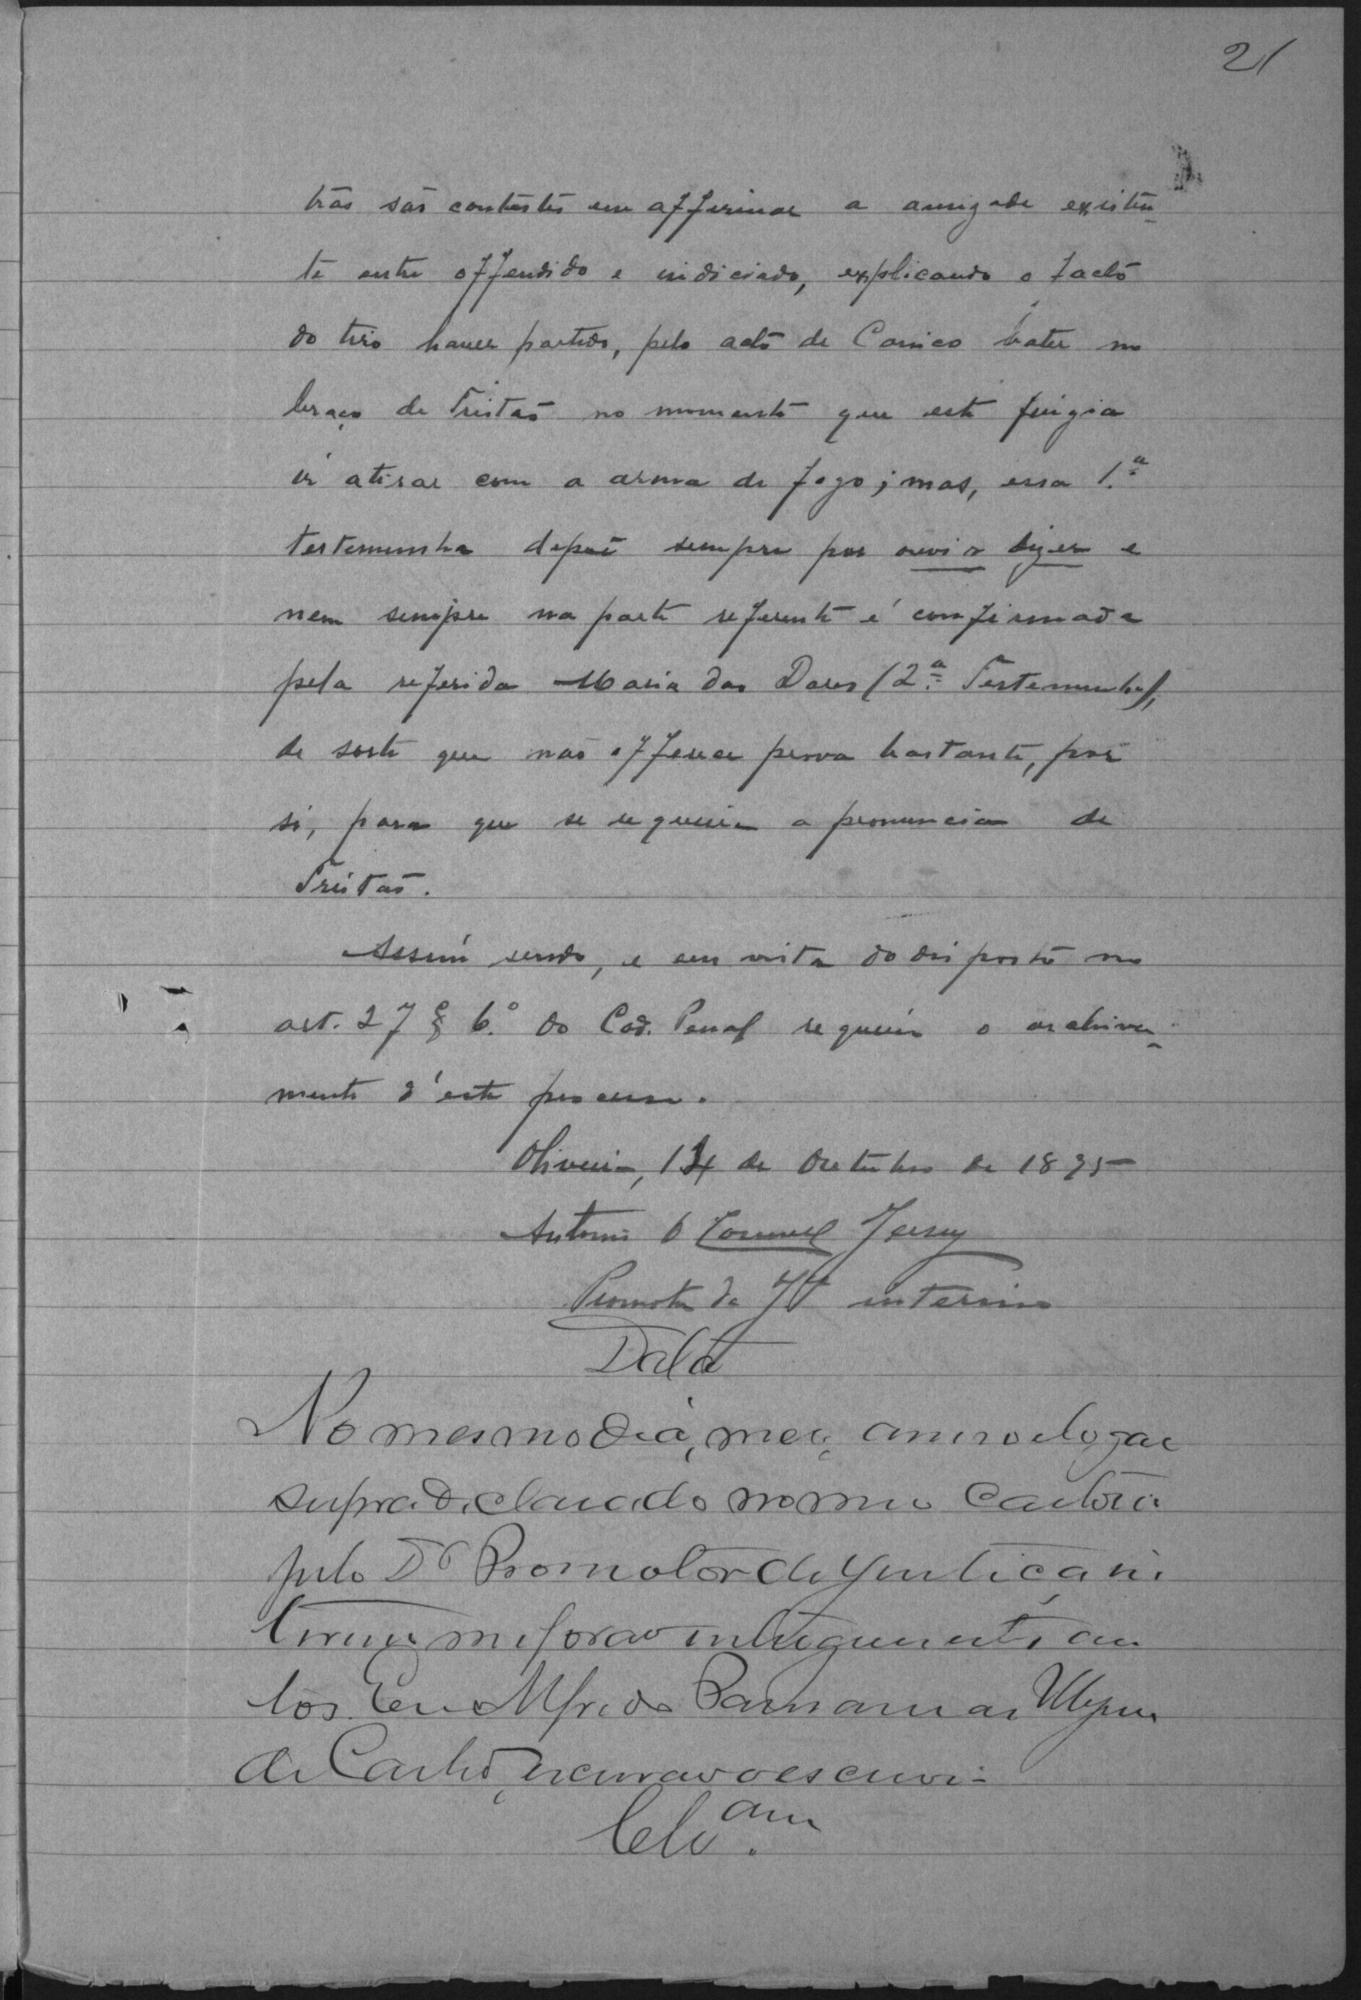 21
trãs são contestes em affirmar a amizade existen-
te entre offendido e indiciado, explicando o facto
do tiro haver partido, pelo acto de Canico bater no
braço de Tristão no momento que este fingia
ir atirar com a arma de fogo; mas, essa 1.ª
testemunha depoē sempre por ouvir dizer e
nem sempre na parte referente é confirmada
pela referida Maria das Dores (2.ª Testemunha),
de sorte que não offerece prova bastante, por
si, para que se requeira a pronuncia de
Tristão.
Assim sendo, e em vista do disposto no
art. 27 § 6.º do Cod. Penal requeiro o archiva-
mento d'este processo.
Oliveira, 14 de Outubro de 1895
Antonio
Promotor da Jª interino
Data
No mesmo dia, mez, anno e logar
supra declarado no meu Cartorio
pelo Dr Promotor de Justiça in
terino me forão entregues estes au
tos. Eu Alfredo
de Castro, escrivão o escrevi
Clsam.